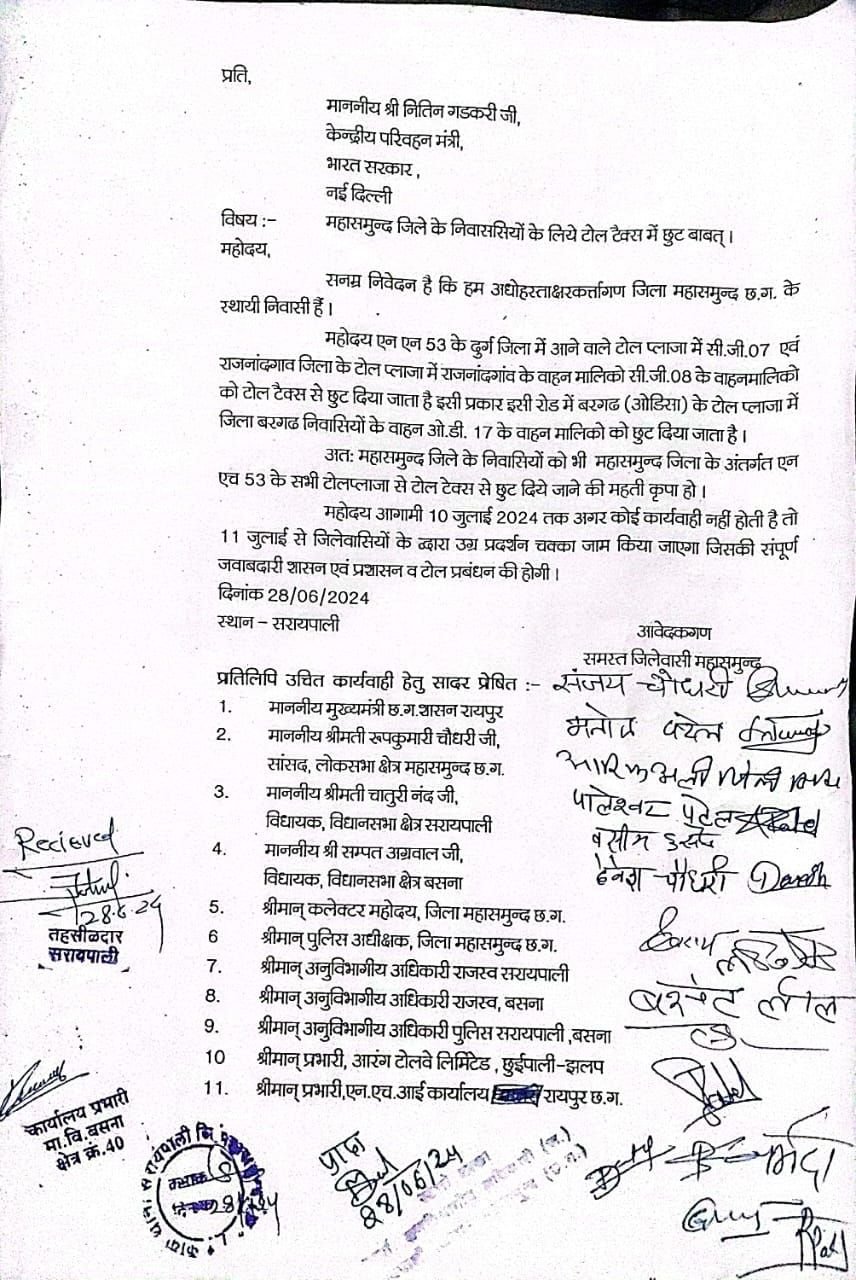 प्रति,
माननीय श्री नितिन गडकरी जी,
केन्द्रीय परिवहन मंत्री,
भारत सरकार ,
नई दिल्ली
विषय :- महासमुन्द जिले के निवाससियों के लिये टोल टैक्स में छुट बाबत् ।
महोदय,
सनम्र निवेदन है कि हम अधोहस्ताक्षरकर्त्तागण जिला महासमुन्द छ.ग. के
स्थायी निवासी हैं ।
महोदय एन एन 53 के दुर्ग जिला में आने वाले टोल प्लाजा में सी.जी.07 एवं
राजनांदगाव जिला के टोल प्लाजा में राजनांदगांव के वाहन मालिको सी.जी.08 के वाहनमालिको
को टोल टैक्स से छुट दिया जाता है इसी प्रकार इसी रोड में बरगढ (ओडिसा) के टोल प्लाजा में
जिला बरगढ निवासियों के वाहन ओ.डी. 17 के वाहन मालिको को छुट दिया जाता है ।
अत: महासमुन्द जिले के निवासियों को भी महासमुन्द जिला के अंतर्गत एन
एच 53 के सभी टोलप्लाजा से टोल टेक्स से छुट दिये जाने की महती कृपा हो ।
महोदय आगामी 10 जुलाई 2024 तक अगर कोई कार्यवाही नहीं होती है तो
11 जुलाई से जिलेवासियों के द्वारा उग्र प्रदर्शन चक्का जाम किया जाएगा जिसकी संपूर्ण
जवाबदारी शासन एवं प्रशासन व टोल प्रबंधन की होगी ।
दिनांक 28/06/2024
स्थान – सरायपाली
आवेदकगण
समस्त जिलेवासी महासमुन्द
प्रतिलिपि उचित कार्यवाही हेतु सादर प्रेषित :-
संजय चौधरी
1. माननीय मुख्यमंत्री छ.ग.शासन रायपुर
2. माननीय श्रीमती रूपकुमारी चौधरी जी,
सांसद, लोकसभा क्षेत्र महासमुन्द छ.ग.
3. माननीय श्रीमती चातुरी नंद जी,
विधायक, विधानसभा क्षेत्र सरायपाली
पालेश्वर पटेल
4. माननीय श्री सम्पत अग्रवाल जी,
विधायक, विधानसभा क्षेत्र बसना
चौधरी
5. श्रीमान् कलेक्टर महोदय, जिला महासमुन्द छ.ग.
6 श्रीमान् पुलिस अधीक्षक, जिला महासमुन्द छ.ग.
7. श्रीमान् अनुविभागीय अधिकारी राजस्व सरायपाली
8. श्रीमान् अनुविभागीय अधिकारी राजस्व, बसना
9. श्रीमान् अनुविभागीय अधिकारी पुलिस सरायपाली ,बसना
10 श्रीमान् प्रभारी, आरंग टोलवे लिमिटेड , छुईपाली-झलप
11. श्रीमान् प्रभारी,एन.एच.आई कार्यालय रायपुर छ.ग.
Recieved
28.6.24
तहसीलदार
सरायपाली
कार्यालय प्रभारी
मा.वि.बसना
क्षेत्र क्रं.40
28/06/24